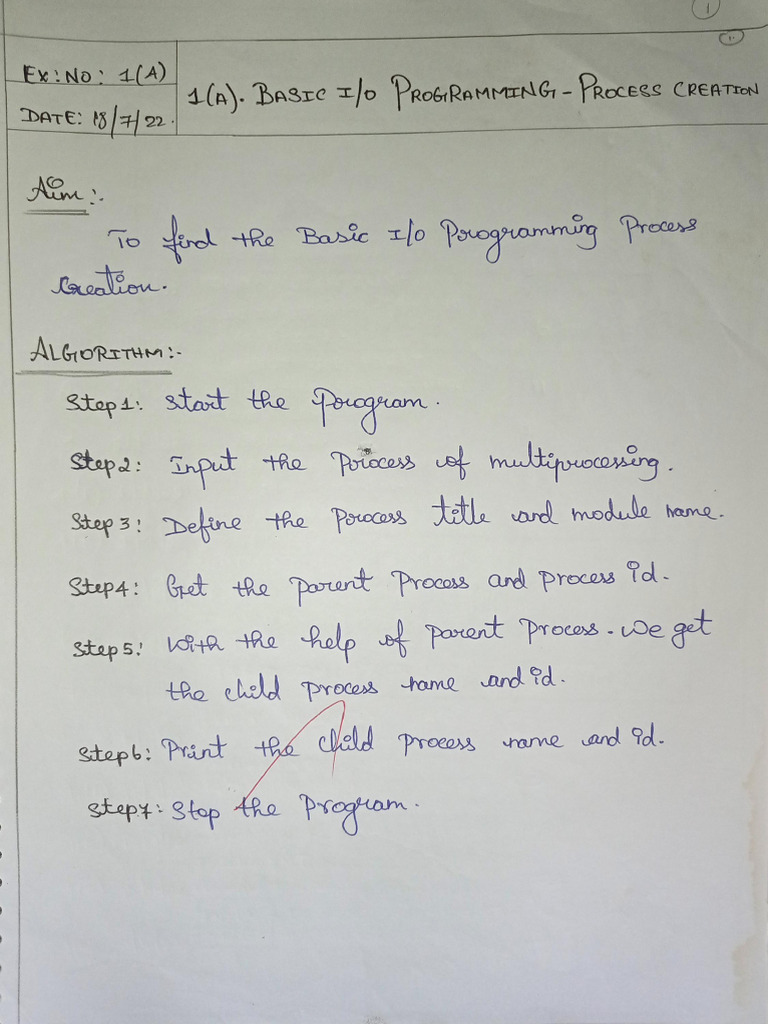 1
EX:NO: 1(A)
DATE: 18/7/22.
1(A). BASIC I/O PROGRAMMING - PROCESS CREATION
Aim:-
To find the Basic I/O Programming Process
Creation.
ALGORITHM:-
Step1: Start the Program.
Step2: Input the Process of multiprocessing.
Step3: Define the Process title and module name.
Step4: Get the parent Process and process id.
Step5: With the help of parent Process. We get
the child process name and id.
Step6: Print the child process name and id.
Step7: Stop the Program.